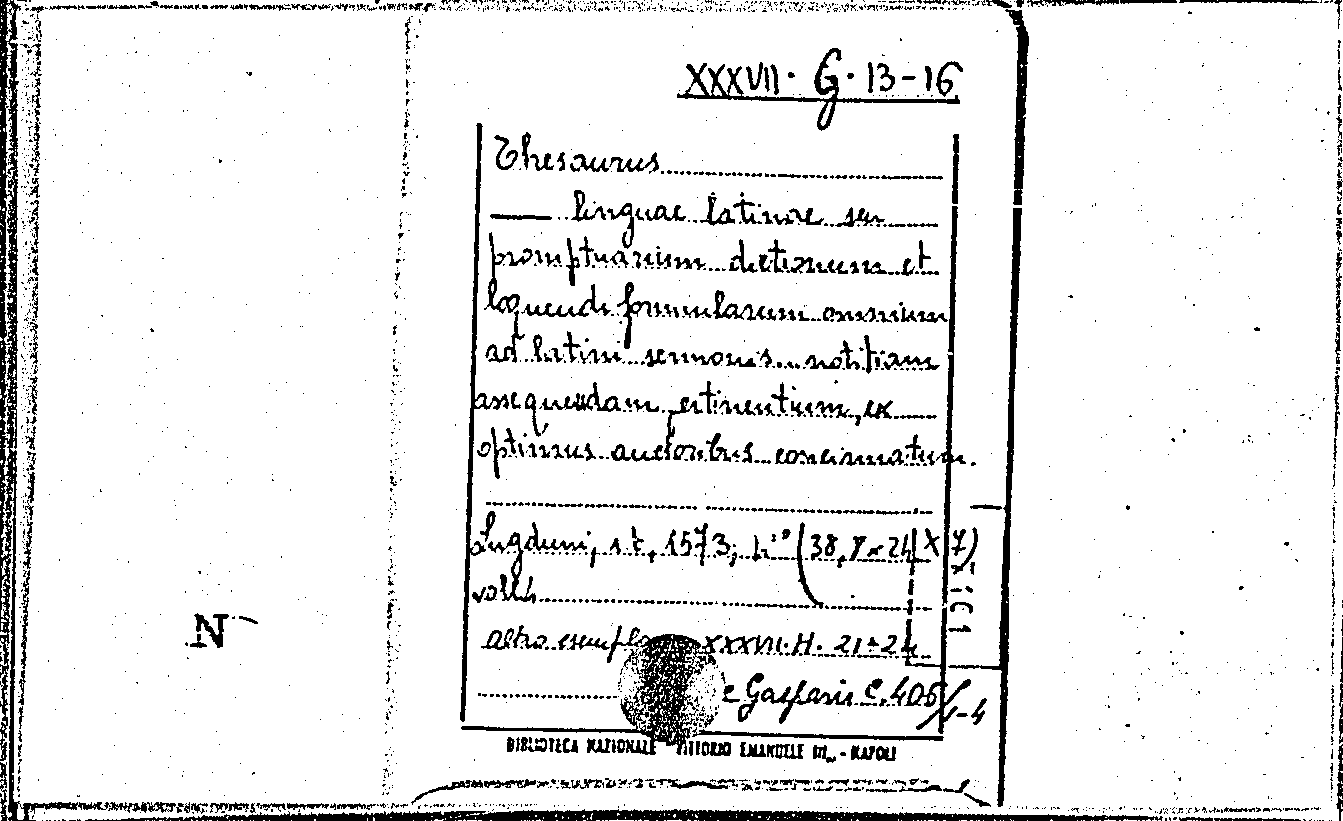 XXXVII. G. 13-16
Thesaurus
— linguae latinae seu
promptuarium dictionum et
loquendi formularum omnium
ad latini sermonis notitiam
assequendam pertinentium, ex
optimis auctoribus concinnatum.
Lugduni, s.t., 1573, (38, X 7)
voll.4
altro esempl XXXVII. H. 21-24
e Gasparis C. 405/1-4
N
BIBLIOTECA NAZIONALE VITTORIO EMANUELE III - NAPOLI